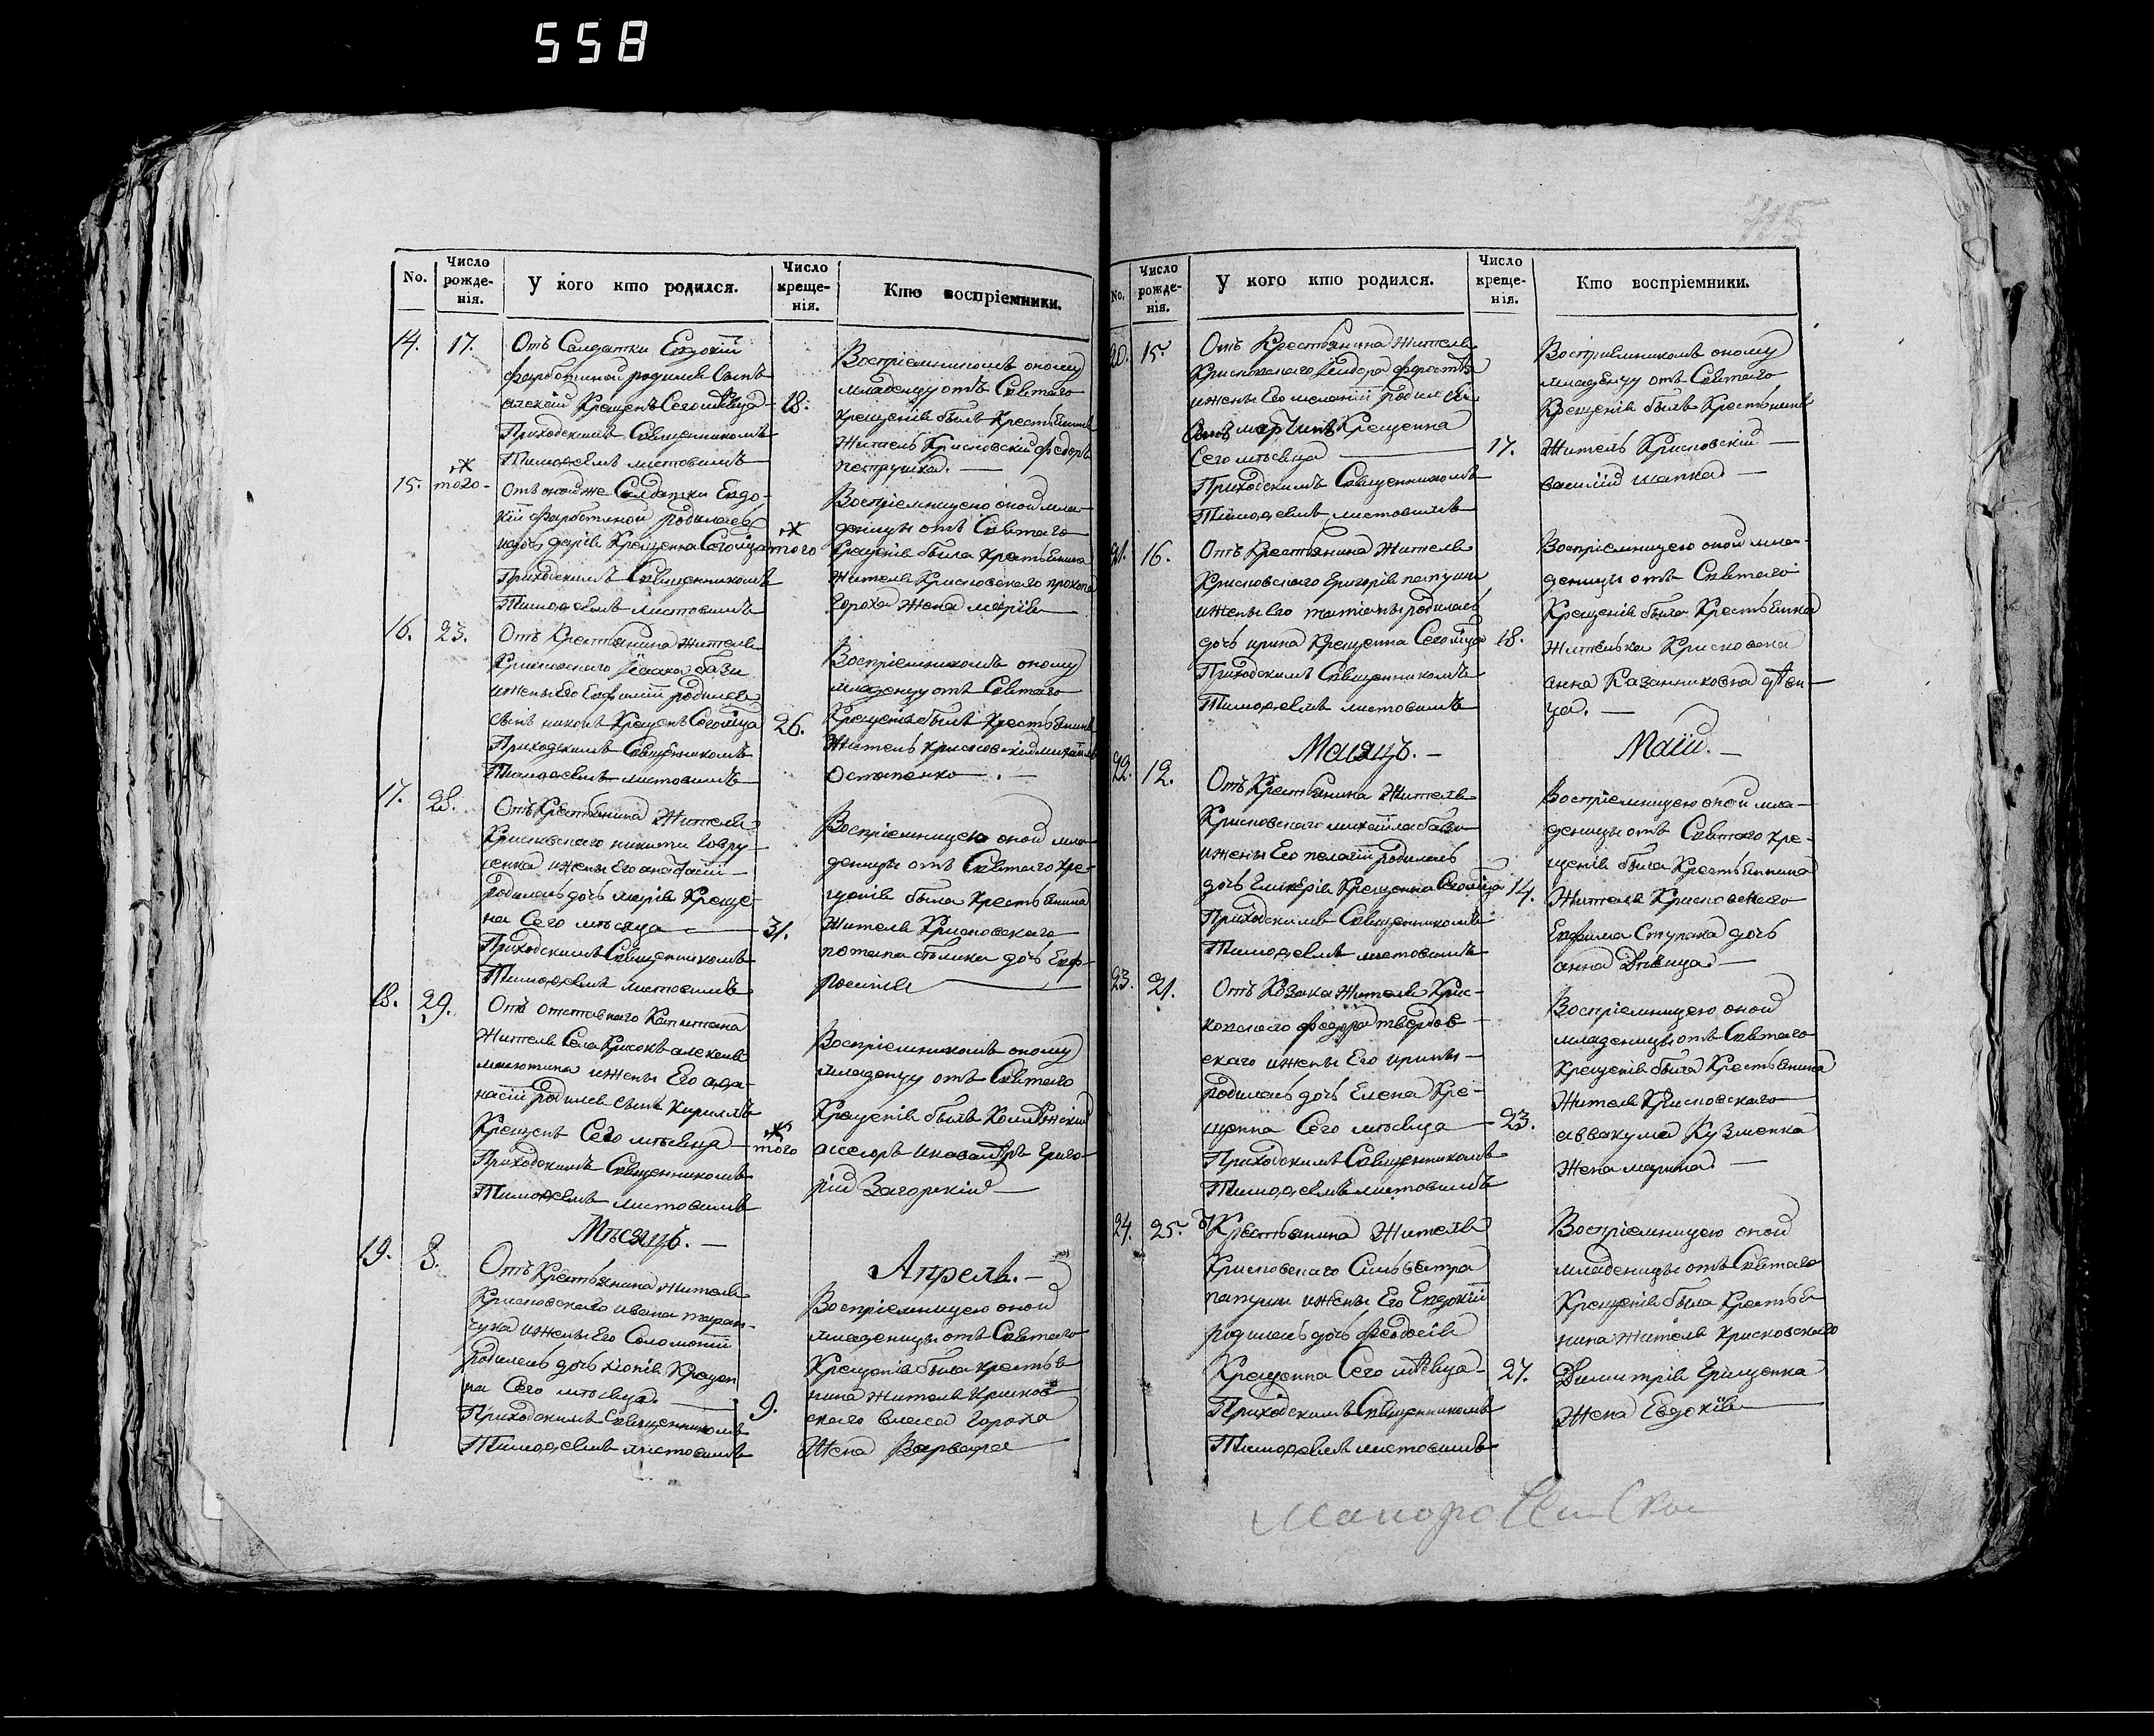 558
No.
Число рожде-нія.
У кого кто родился.
Число креще-нія.
Кто воспріемники.
14. 17.
Отъ Салдатки Евдокіи
родился Сынъ
алексій Крещенъ Сего мѣсяца 18.
Приходскимъ Священникомъ
Тимоѳеемъ листовимъ
Воспріемникомъ оному
младенцу отъ Святаго
крещенія былъ Крестьянинъ
Житель Крисковскій Федоръ
петрушка.
15. того ж
Отъ оной же Салдатки Евдо-
кіи родилась
дочь дарія Крещенна Сего мѣсяца того ж
Приходскимъ Священникомъ
Тимоѳеемъ листовимъ
Воспріемницею оной мла-
деницы отъ Святаго
Крещенія была Крестьянина
Жителя Крисковского прокопа
гороха Жена марія
16. 23.
Отъ Крестьянина Жителя
Крисковского Ісаака бази
и жены Его Евфиміи родился
сынъ никонъ Крещенъ Сего мѣсяца 26.
Приходскимъ Священникомъ
Тимоѳеемъ листовимъ
Воспріемникомъ оному
младенцу отъ Святаго
Крещенія былъ Крестьянинъ
Житель крисковскій михайлъ
Остапенко.
17. 28.
Отъ Крестьянина Жителя
Крисковского никити Гавру-
сенка и жены Его
родилась дочь марія Креще-
на Сего мѣсяца 31.
Приходскимъ Священникомъ
Тимоѳеемъ листовимъ
Воспріемницею оной мла-
деницы отъ Святаго кре-
щенія была Крестьянина
Жителя Крисковского
потапа дочь Евф-
росинія
18. 29.
Отъ отставнаго Капитана
Жителя Села Крисокъ алексея
и жены Его
родился сынъ Кириллъ
Крещенъ Сего мѣсяца того ж
Приходскимъ Священникомъ
Тимоѳеемъ листовимъ
Воспріемникомъ оному
младенцу отъ Святаго
Крещенія былъ Коллежскій
асессоръ Григо-
рій Загорскій
Мѣсяцъ.
Апрель.
19. 8.
Отъ Крестьянина Жителя
Крисковского ивана таран-
чука и жены Его Соломоніи
родилась дочь хіонія Крещен
на Сего мѣсяца. 9.
Приходскимъ Священникомъ
Тимоѳеемъ листовимъ
Воспріемницею оной
младеницы отъ Святаго
Крещенія была крестья
нина жителя Крисков
ского власа Гороха
Жена Варвара
715
No.
Число рожде-нія.
У кого кто родился.
Число креще-нія.
Кто воспріемники.
20. 15.
Отъ Крестьянина Жителя
Крисковского
и жены Его меланіи родился
Сынъ мартинъ Крещенна
Сего мѣсяца 17.
Приходскимъ Священникомъ
Тимоѳеемъ листовимъ
Воспріемникомъ оному
младенцу отъ Святаго
Крещенія былъ Крестьянинъ
Житель Крисковскій
василій шапка
21. 16.
Отъ Крестьянина Жителя
Крисковского григорія папуши
и жены Его татіаны родилась
дочь ирина Крещенна Сего мѣсяца 18.
Приходскимъ Священникомъ
Тимоѳеемъ листовимъ
Воспріемницею оной мла-
деницы отъ Святаго
Крещенія была Крестьянка
Жителька Крисковска
анна Казанниковна дѣви-
ца.
Мѣсяцъ.
Маій.
22. 12.
Отъ Крестьянина Жителя
Крисковского михайла бази
и жены Его пелагіи родилась
дочь Гликерія Крещенна Сего мѣсяца 14.
Приходскимъ Священникомъ
Тимоѳеемъ листовимъ
Воспріемницею оной мла-
деницы отъ Святаго кре-
щенія была Крестьянина
Жителя Крисковского
Евфима Ступака дочь
анна Дѣвица.
23. 21.
Отъ Козака Жителя Крис-
ковского федора твердов-
скаго и жены Его ирины
родилась дочь Елена Кре-
щенна Сего мѣсяца 23.
Приходскимъ Священникомъ
Тимоѳеемъ листовимъ
Воспріемницею оной
младеницы отъ Святаго
Крещенія была Крестьянина
Жителя Крисковского
аввакума Кузменка
Жена марина.
24. 25.
Крестьянина Жителя
Крисковского Сильвестра
папуши и жены Его Евдокіи
родилась дочь феодосія
Крещенна Сего мѣсяца 27.
Приходскимъ Священникомъ
Тимоѳеемъ листовимъ
Воспріемницею оной
младеницы отъ Святаго
Крещенія была Крестья
нина Жителя крисковского
Димитрія Грищенка
Жена Евдокія